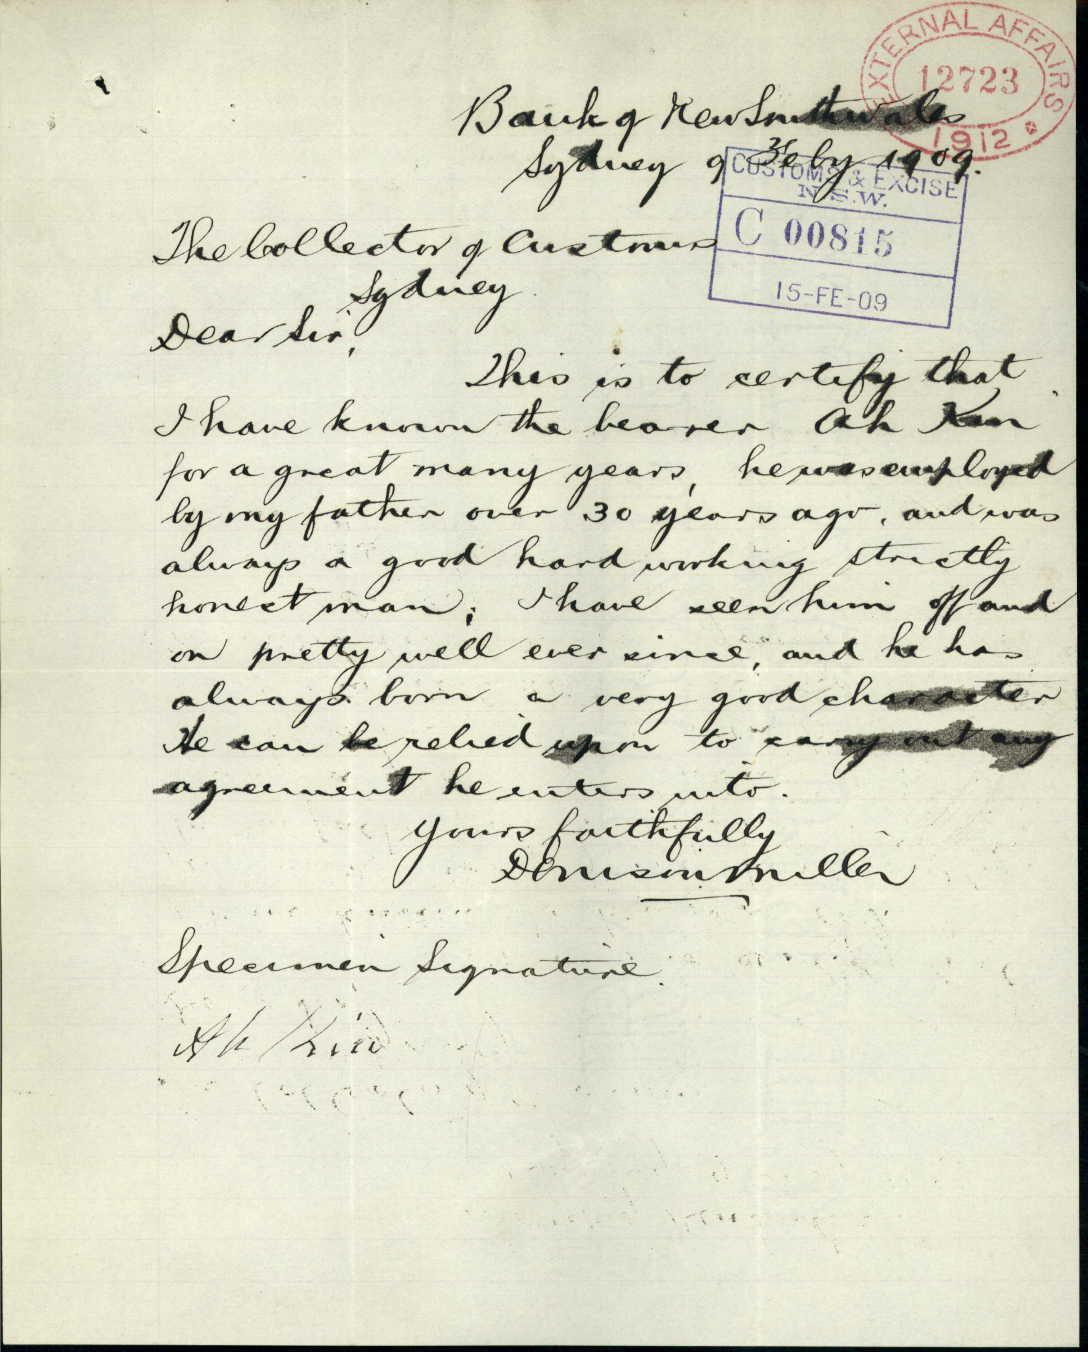 EXTERNAL AFFAIRS
12723
1912
Bank of New South Wales
Sydney 9 Feby 1909.
CUSTOMS & EXCISE
N.S.W.
C 00815
15-FE-09
The Collector of Customs
Sydney
Dear Sir,
This is to certify that
I have known the bearer Ah Kin
for a great many years, he was employed
by my father over 30 years ago, and was
always a good hard working strictly
honest man; I have seen him off and
on pretty well ever since, and he has
always born a very good character
He can be relied upon to carry out any
agreement he enters into.
Yours faithfully
Denison Miller
Specimen Signature.
Ah Kin